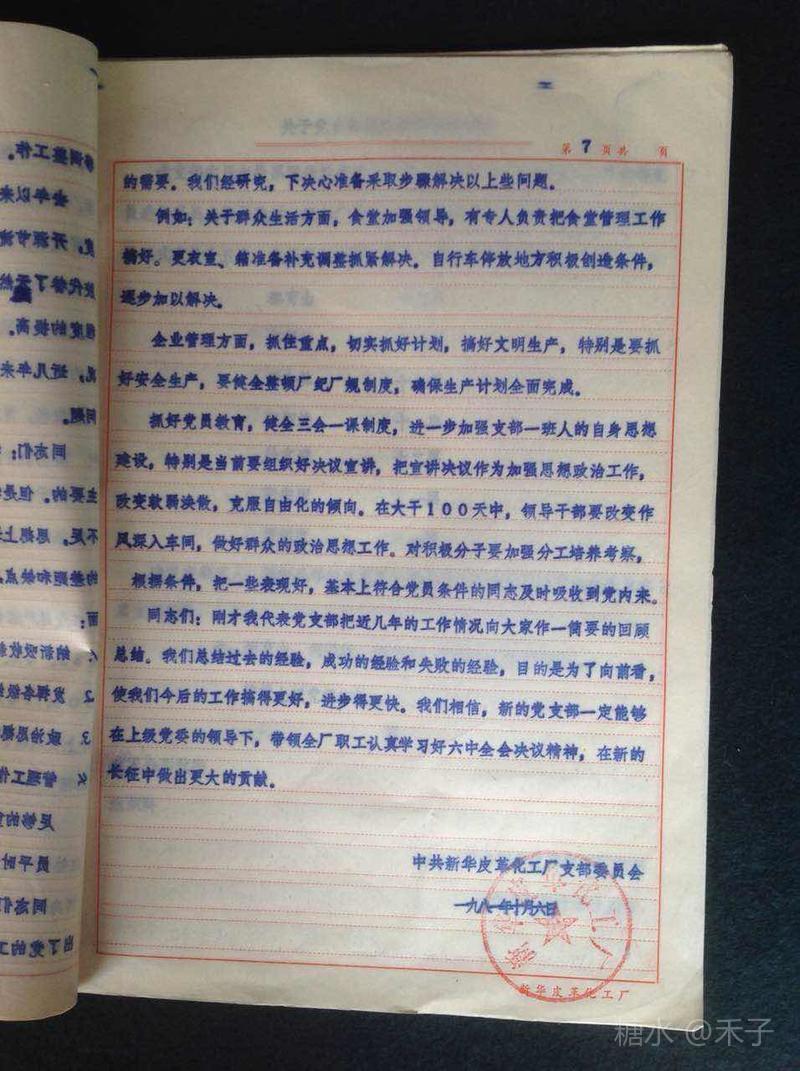 第 7 页共 页
的需要。我们经研究，下决心准备采取步骤解决以上些问题。
例如：关于群众生活方面，食堂加强领导，有专人负责把食堂管理工作
搞好。更衣室、箱准备补充调整抓紧解决。自行车停放地方积极创造条件，
逐步加以解决。
企业管理方面，抓住重点，切实抓好计划，搞好文明生产，特别是要抓
好安全生产，要健全整顿厂纪厂规制度，确保生产计划全面完成。
抓好党员教育，健全三会一课制度，进一步加强支部一班人的自身思想
建设，特别是当前要组织好决议宣讲，把宣讲决议作为加强思想政治工作，
改变软弱涣散，克服自由化的倾向。在大干100天中，领导干部要改变作
风深入车间，做好群众的政治思想工作。对积极分子要加强分工培养考察，
根据条件，把一些表现好，基本上符合党员条件的同志及时吸收到党内来。
同志们：刚才我代表党支部把近几年的工作情况向大家作一简要的回顾
总结。我们总结过去的经验，成功的经验和失败的经验，目的是为了向前看，
使我们今后的工作搞得更好，进步得更快。我们相信，新的党支部一定能够
在上级党委的领导下，带领全厂职工认真学习好六中全会决议精神，在新的
长征中做出更大的贡献。
中共新华皮革化工厂支部委员会
一九八一年十月六日
新华皮革化工厂
糖水 @禾子